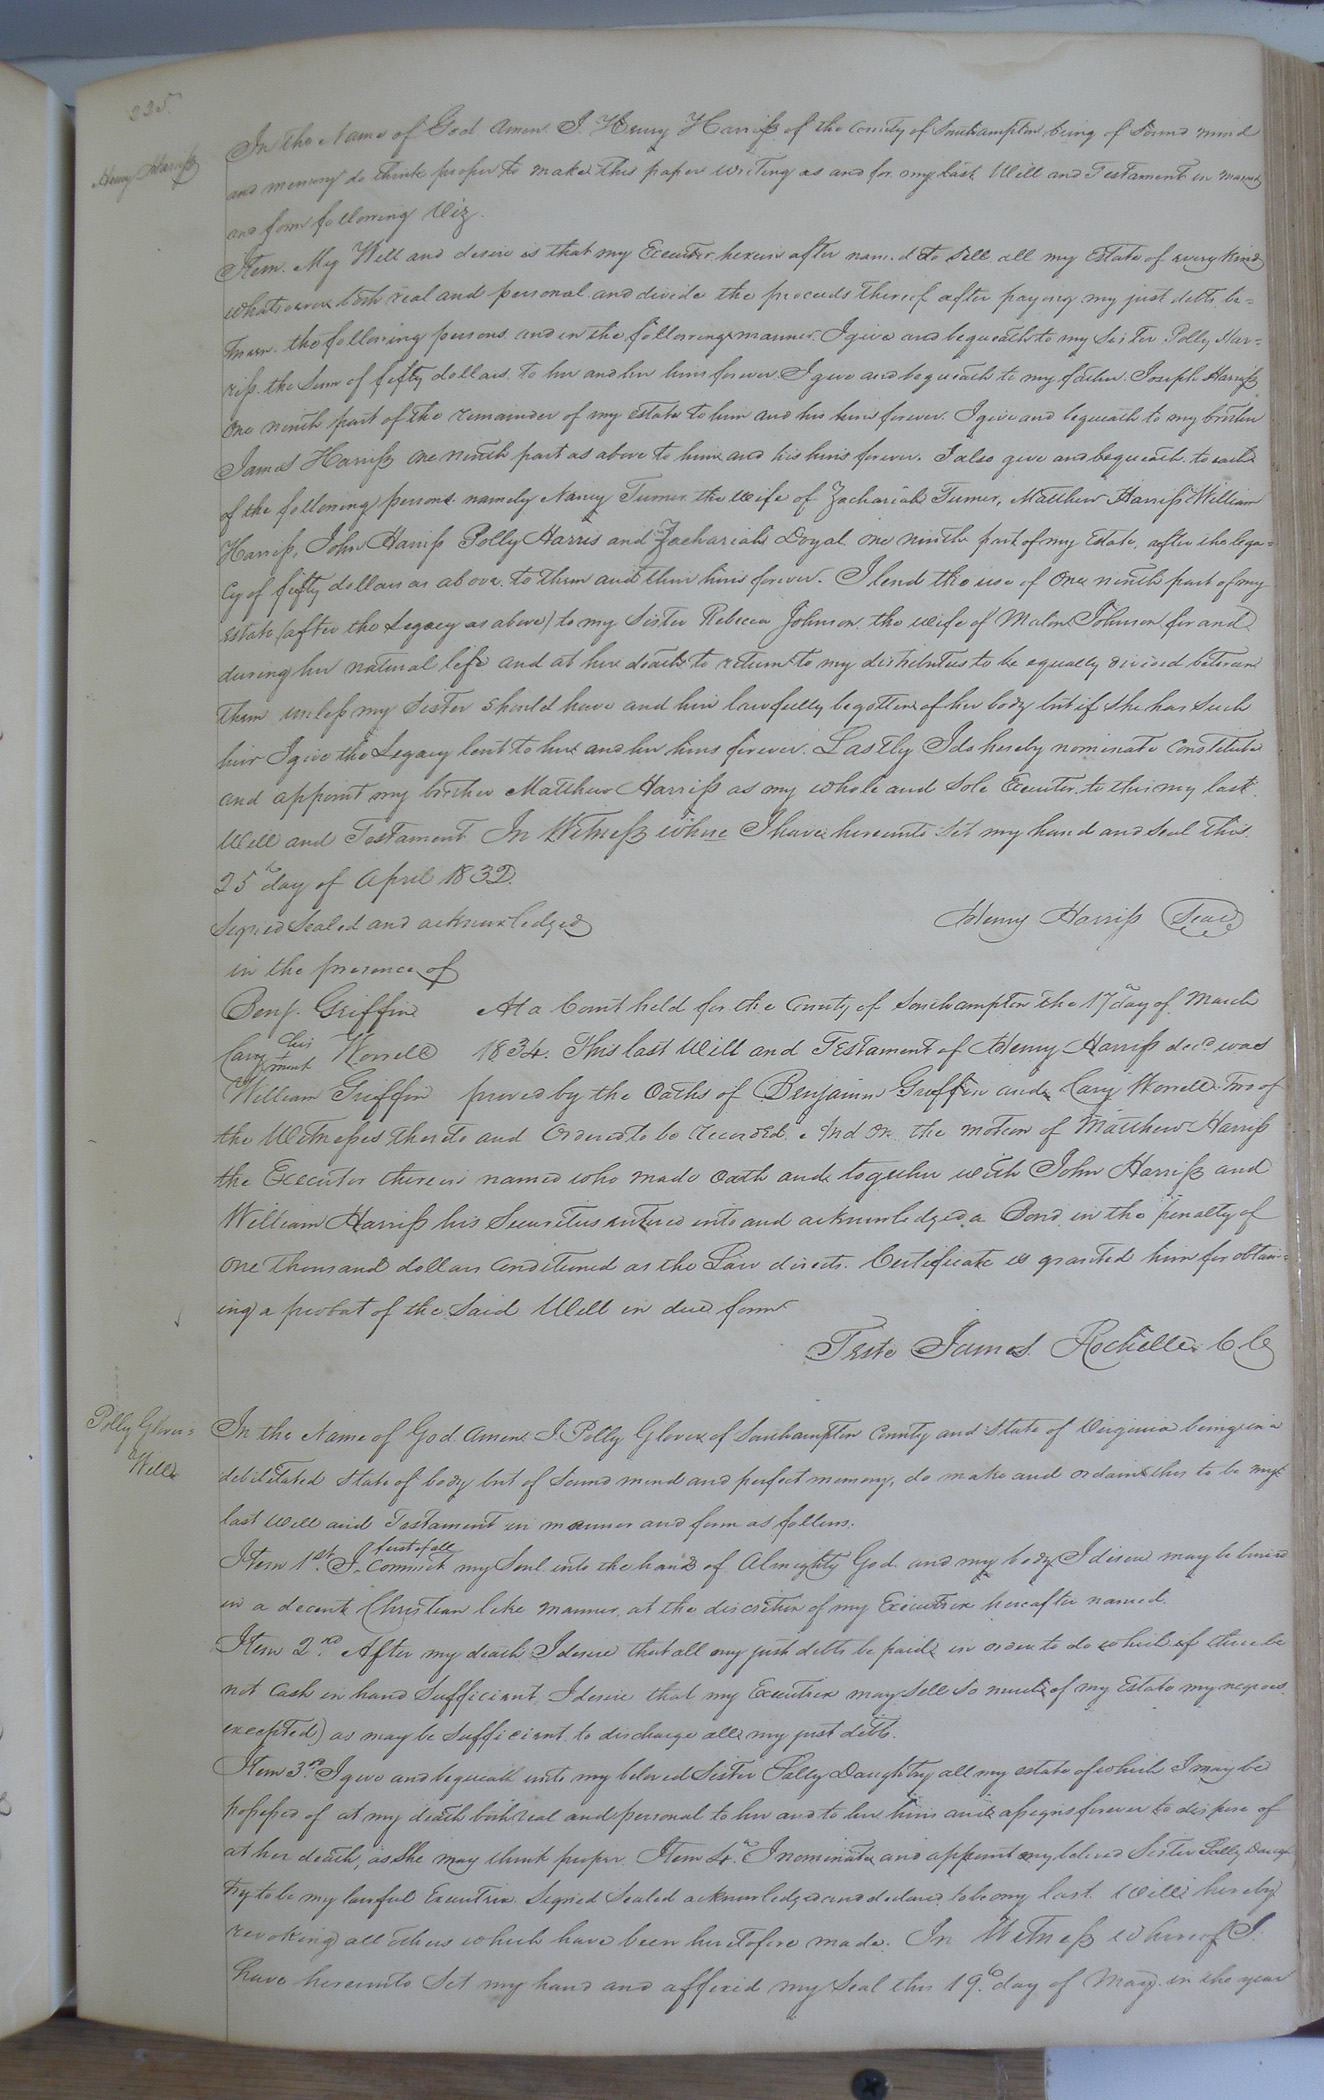 225.
Henry Harriss
In the Name of God Amen. I Henry Harriss of the County of Southampton being of Sound mind
and memory do think proper to make this paper writing as and for my last Will and Testament in manner
and form following Viz.
Item. My Will and desire is that my Executor herein after nam.d to Sell all my Estate of every kind
whatsoever both real and personal and divide the proceeds thereof after paying my just debts be=
tween the following persons and in the following manner. I give and bequeath to my Sister Polly Har=
riss the Sum of fifty dollars to her and her heirs forever. I give and bequeath to my father Joseph Harriss
One ninth part of the remainder of my estate to him and his heirs forever. I give and bequeath to my brother
James Harriss one ninth part as above to him and his heirs forever. I also give and bequeath to each
of the following persons namely Nancy Turner the wife of Zachariah Turner, Matthew Harriss William
Harriss, John Harriss Polly Harris and Zachariah Doyal one ninth part of my Estate, after the lega=
cy of fifty dollars as above to them and their heirs forever. I lend the use of One ninth part of my
estate (after the Legacy as above) to my Sister Rebecca Johnson the wife of Malon Johnson for and
during her natural life and at her death to return to my distributees to be equally divided between
them unless my Sister should have and heir lawfully begotten of her body but if she has such
heir I give the Legacy lent to her and her heirs forever. Lastly I do hereby nominate Constitute
and appoint my brother Matthew Harriss as my whole and Sole Executor to this my last
Will and Testament In Witness where I have hereunto Set my hand and Seal this
25th day of April 1832.
Signed Sealed and acknowledged Henry Harriss Seal
in the presence of
Benj. Griffin At a Court held for the County of Southampton the 17th day of March
Cary his + mark Worrell 1834. This last Will and Testament of Henry Harriss decd. was
William Griffin proved by the Oaths of Benjamin Griffin and Cary Worrell two of
the Witnesses thereto and Ordered to be recorded. And on the motion of Matthew Harriss
the Executor therein named who made Oath and together with John Harriss and
William Harriss his Securities entered into and acknowledged a Bond in the penalty of
One thousand dollars conditioned as the Law directs. Certificate is granted him for obtain=
ing a probat of the Said Will in due form
Teste James Rochelle C C
Polly Glover=
Will
In the Name of God Amen I Polly Glover of Southampton County and State of Virginia being in a
debilitated State of body but of Sound mind and perfect memory, do make and ordain this to be my
last Will and Testament in manner and form as follows.
Item 1st. I first of all commit my Soul into the hands of Almighty God and my body I desire may be buried
in a decent Christian like manner, at the discretion of my Executrix hereafter named.
Item 2nd. After my death I desire that all my just debts be paid in order to do which if there be
not Cash in hand Sufficient I desire that my Executrix may Sell So much of my Estate my negroes
excepted) as may be Sufficient to discharge all my just debts.
Item 3rd. I give and bequeath unto my beloved Sister Sally Daughtry all my estate of which I may be
possessed of at my death both real and personal to her and to her heirs and assigns forever to dispose of
at her death, as She may think proper. Item 4th. I nominate and appoint my beloved Sister Sally Daugh
try to be my lawful Executrix. Signed Sealed acknowledged and declared to be my last Will hereby
revoking all others which have been heretofore made. In Witness Whereof I
have hereunto Set my hand and affixed my Seal this 19th. day of May in the year